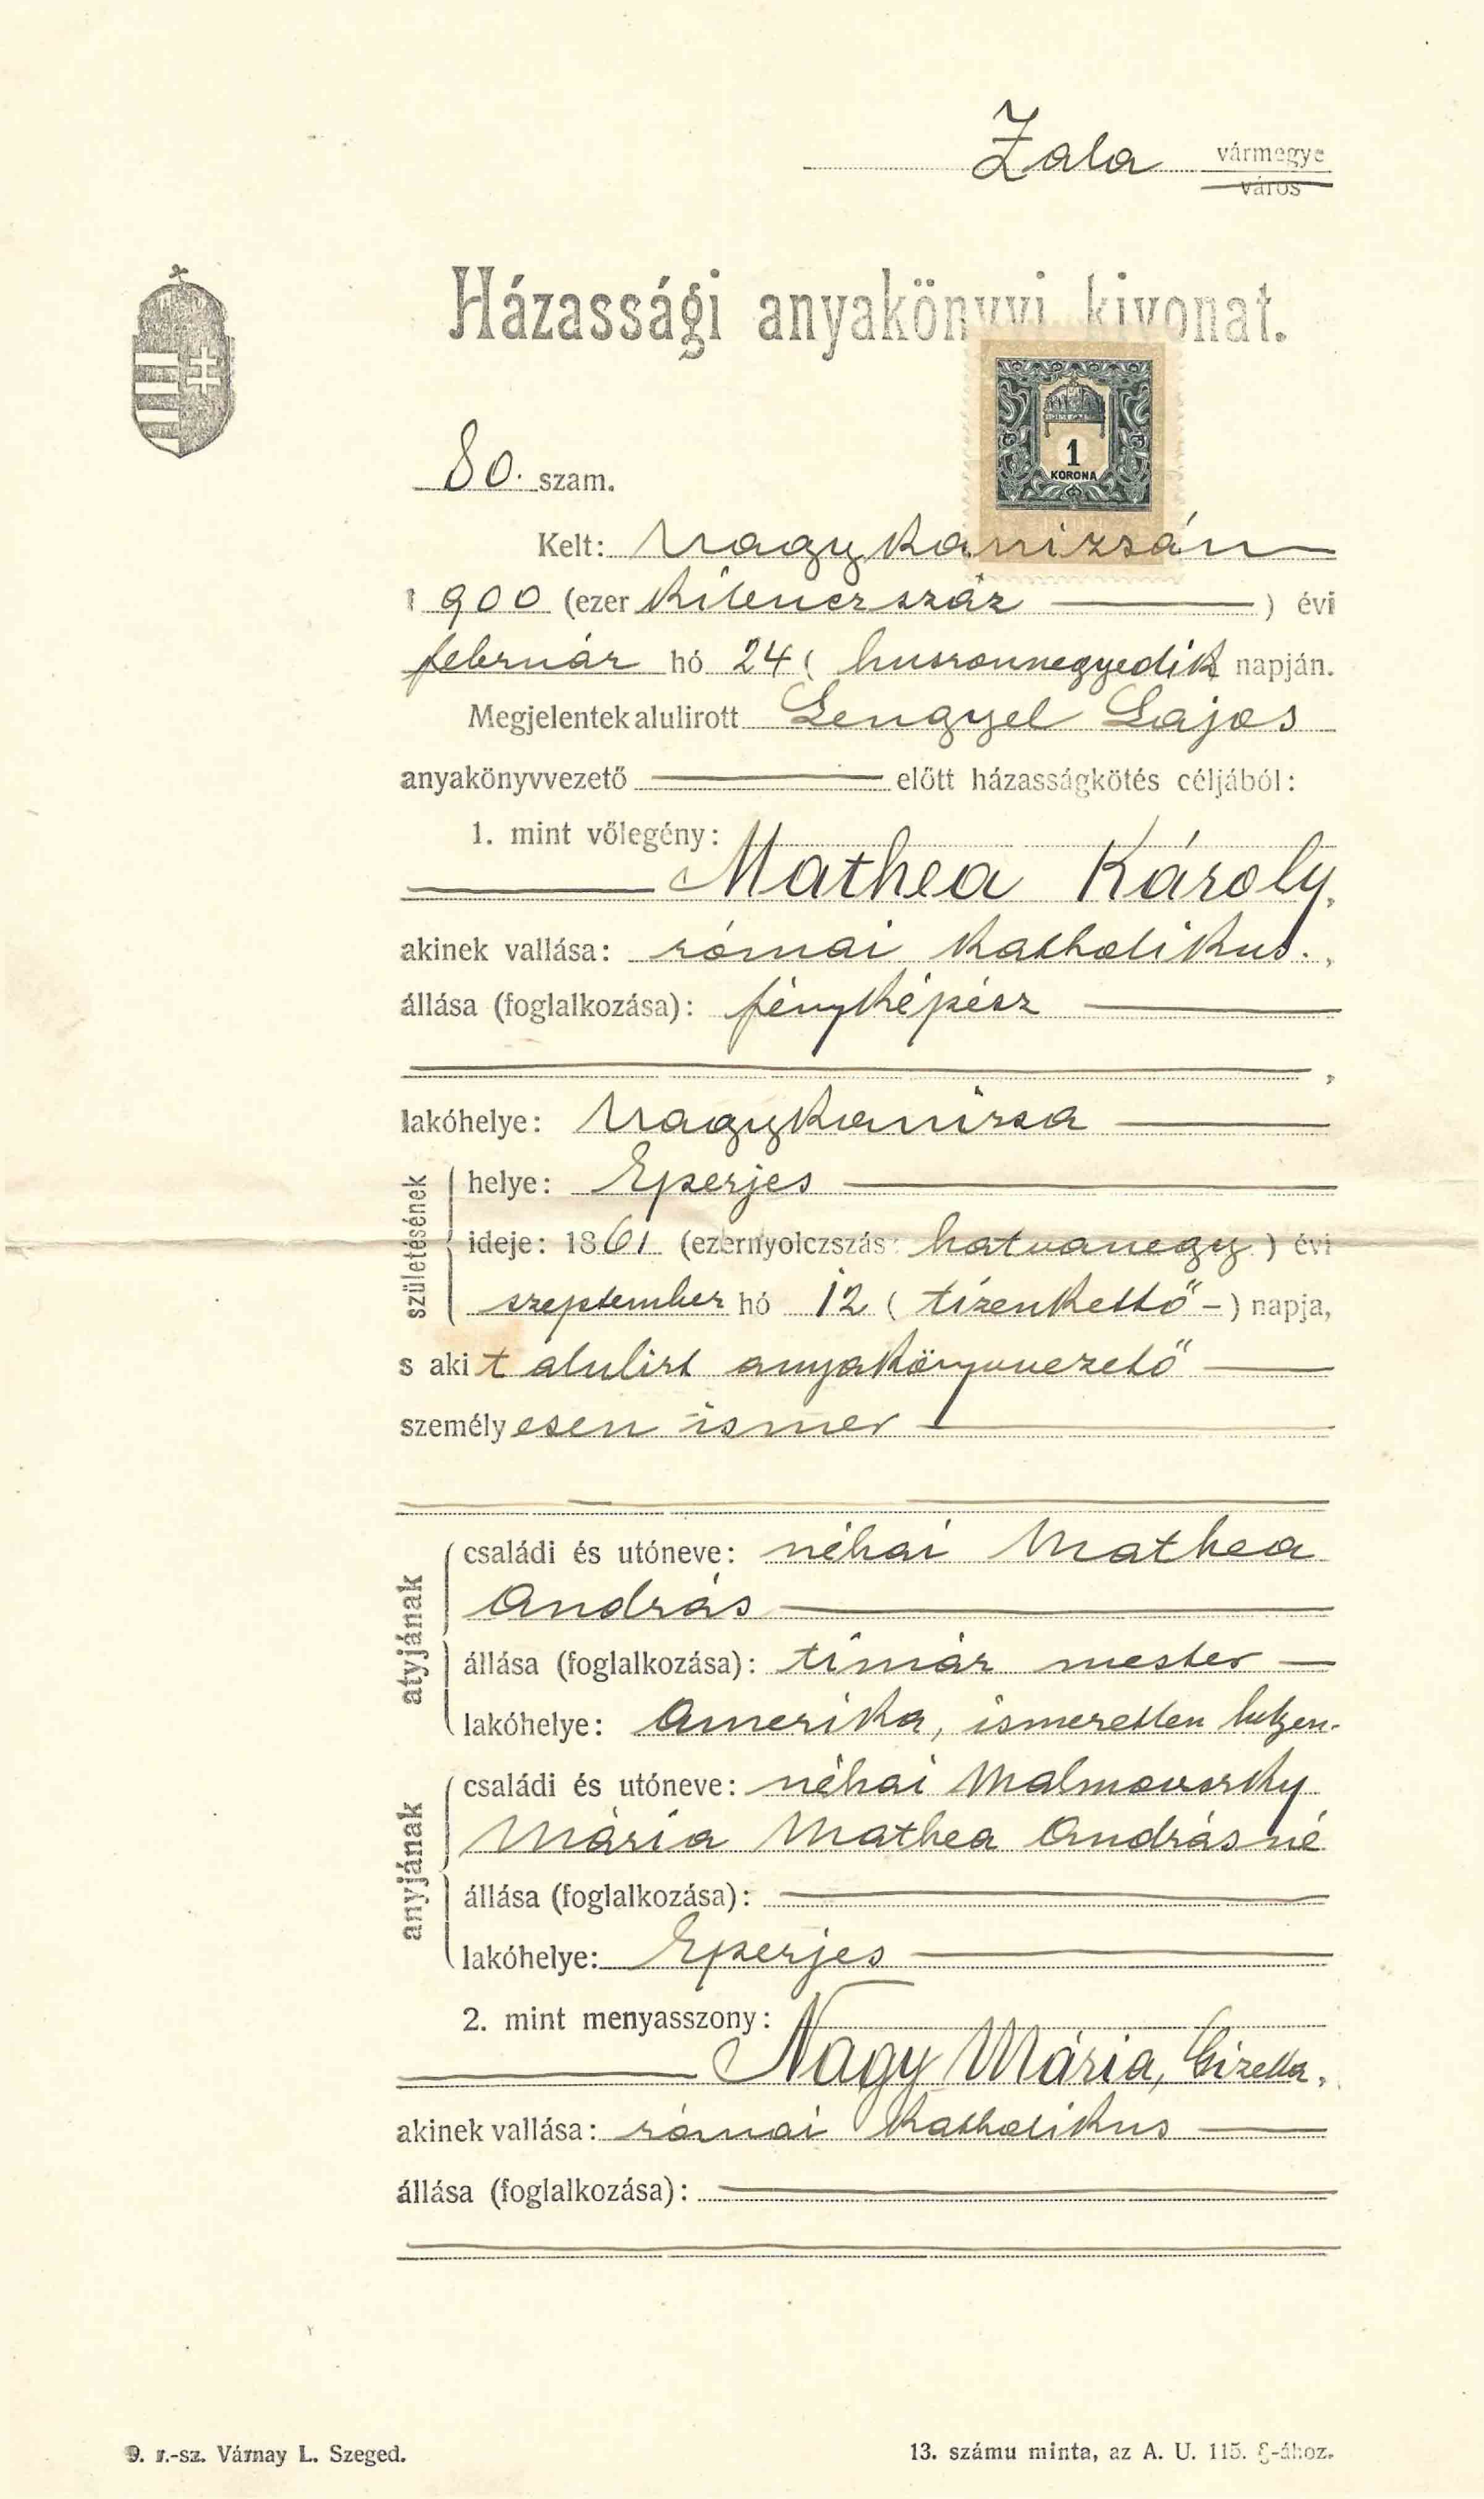 Zala vármegye
város
Házassági anyakönyvi kivonat.
1
KORONA
80. szám.
Kelt: Nagykanizsán
1900 (ezer kilenczszáz) évi
február hó 24 (huszonnegyedik napján.
Megjelentek alulirott Lengyel Lajos
anyakönyvvezető előtt házasságkötés céljából:
1. mint vőlegény:
Mathea Károly,
akinek vallása: római katholikus.,
állása (foglalkozása): fényképész
,
lakóhelye: Nagykanizsa
születésének
helye: Eperjes
ideje: 1861 (ezernyolczszáz hatvanegy) évi
szeptember hó 12 (tizenkettő -) napja,
s akit alulirt anyakönyvvezető
személyesen ismer
atyjának
családi és utóneve: néhai Mathea
András
állása (foglalkozása): timár mester
lakóhelye: Amerika, ismeretlen helyen.
anyjának
családi és utóneve: néhai
Mária Mathea Andrásné
állása (foglalkozása):
lakóhelye: Eperjes
2. mint menyasszony:
Nagy Mária, Gizella,
akinek vallása: római katholikus
állása (foglalkozása):
9. r.-sz. Várnay L. Szeged.
13. számu minta, az A. U. 115. §-ához.